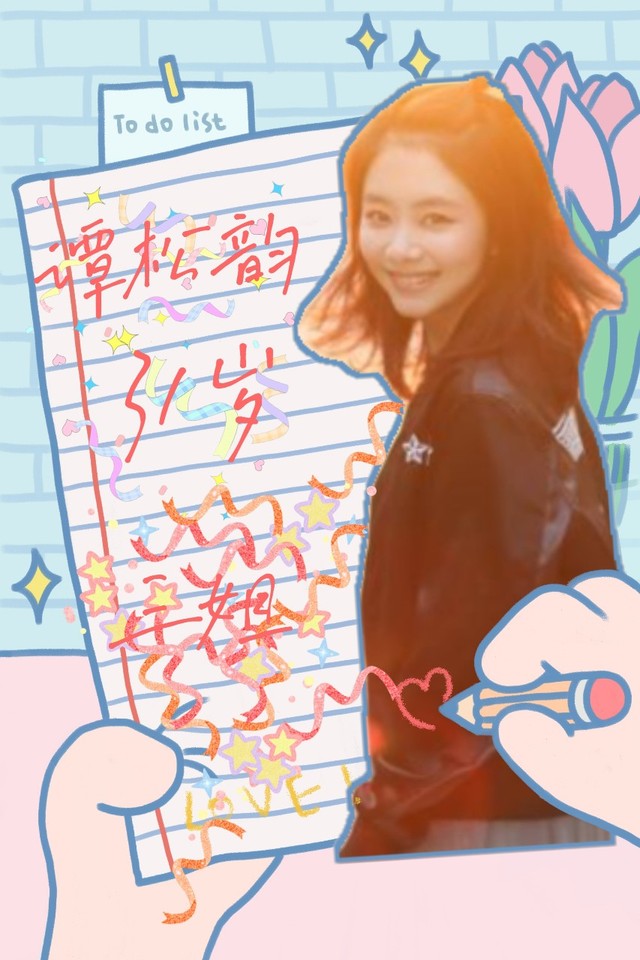 To do list
谭松韵
31岁
LOVE!